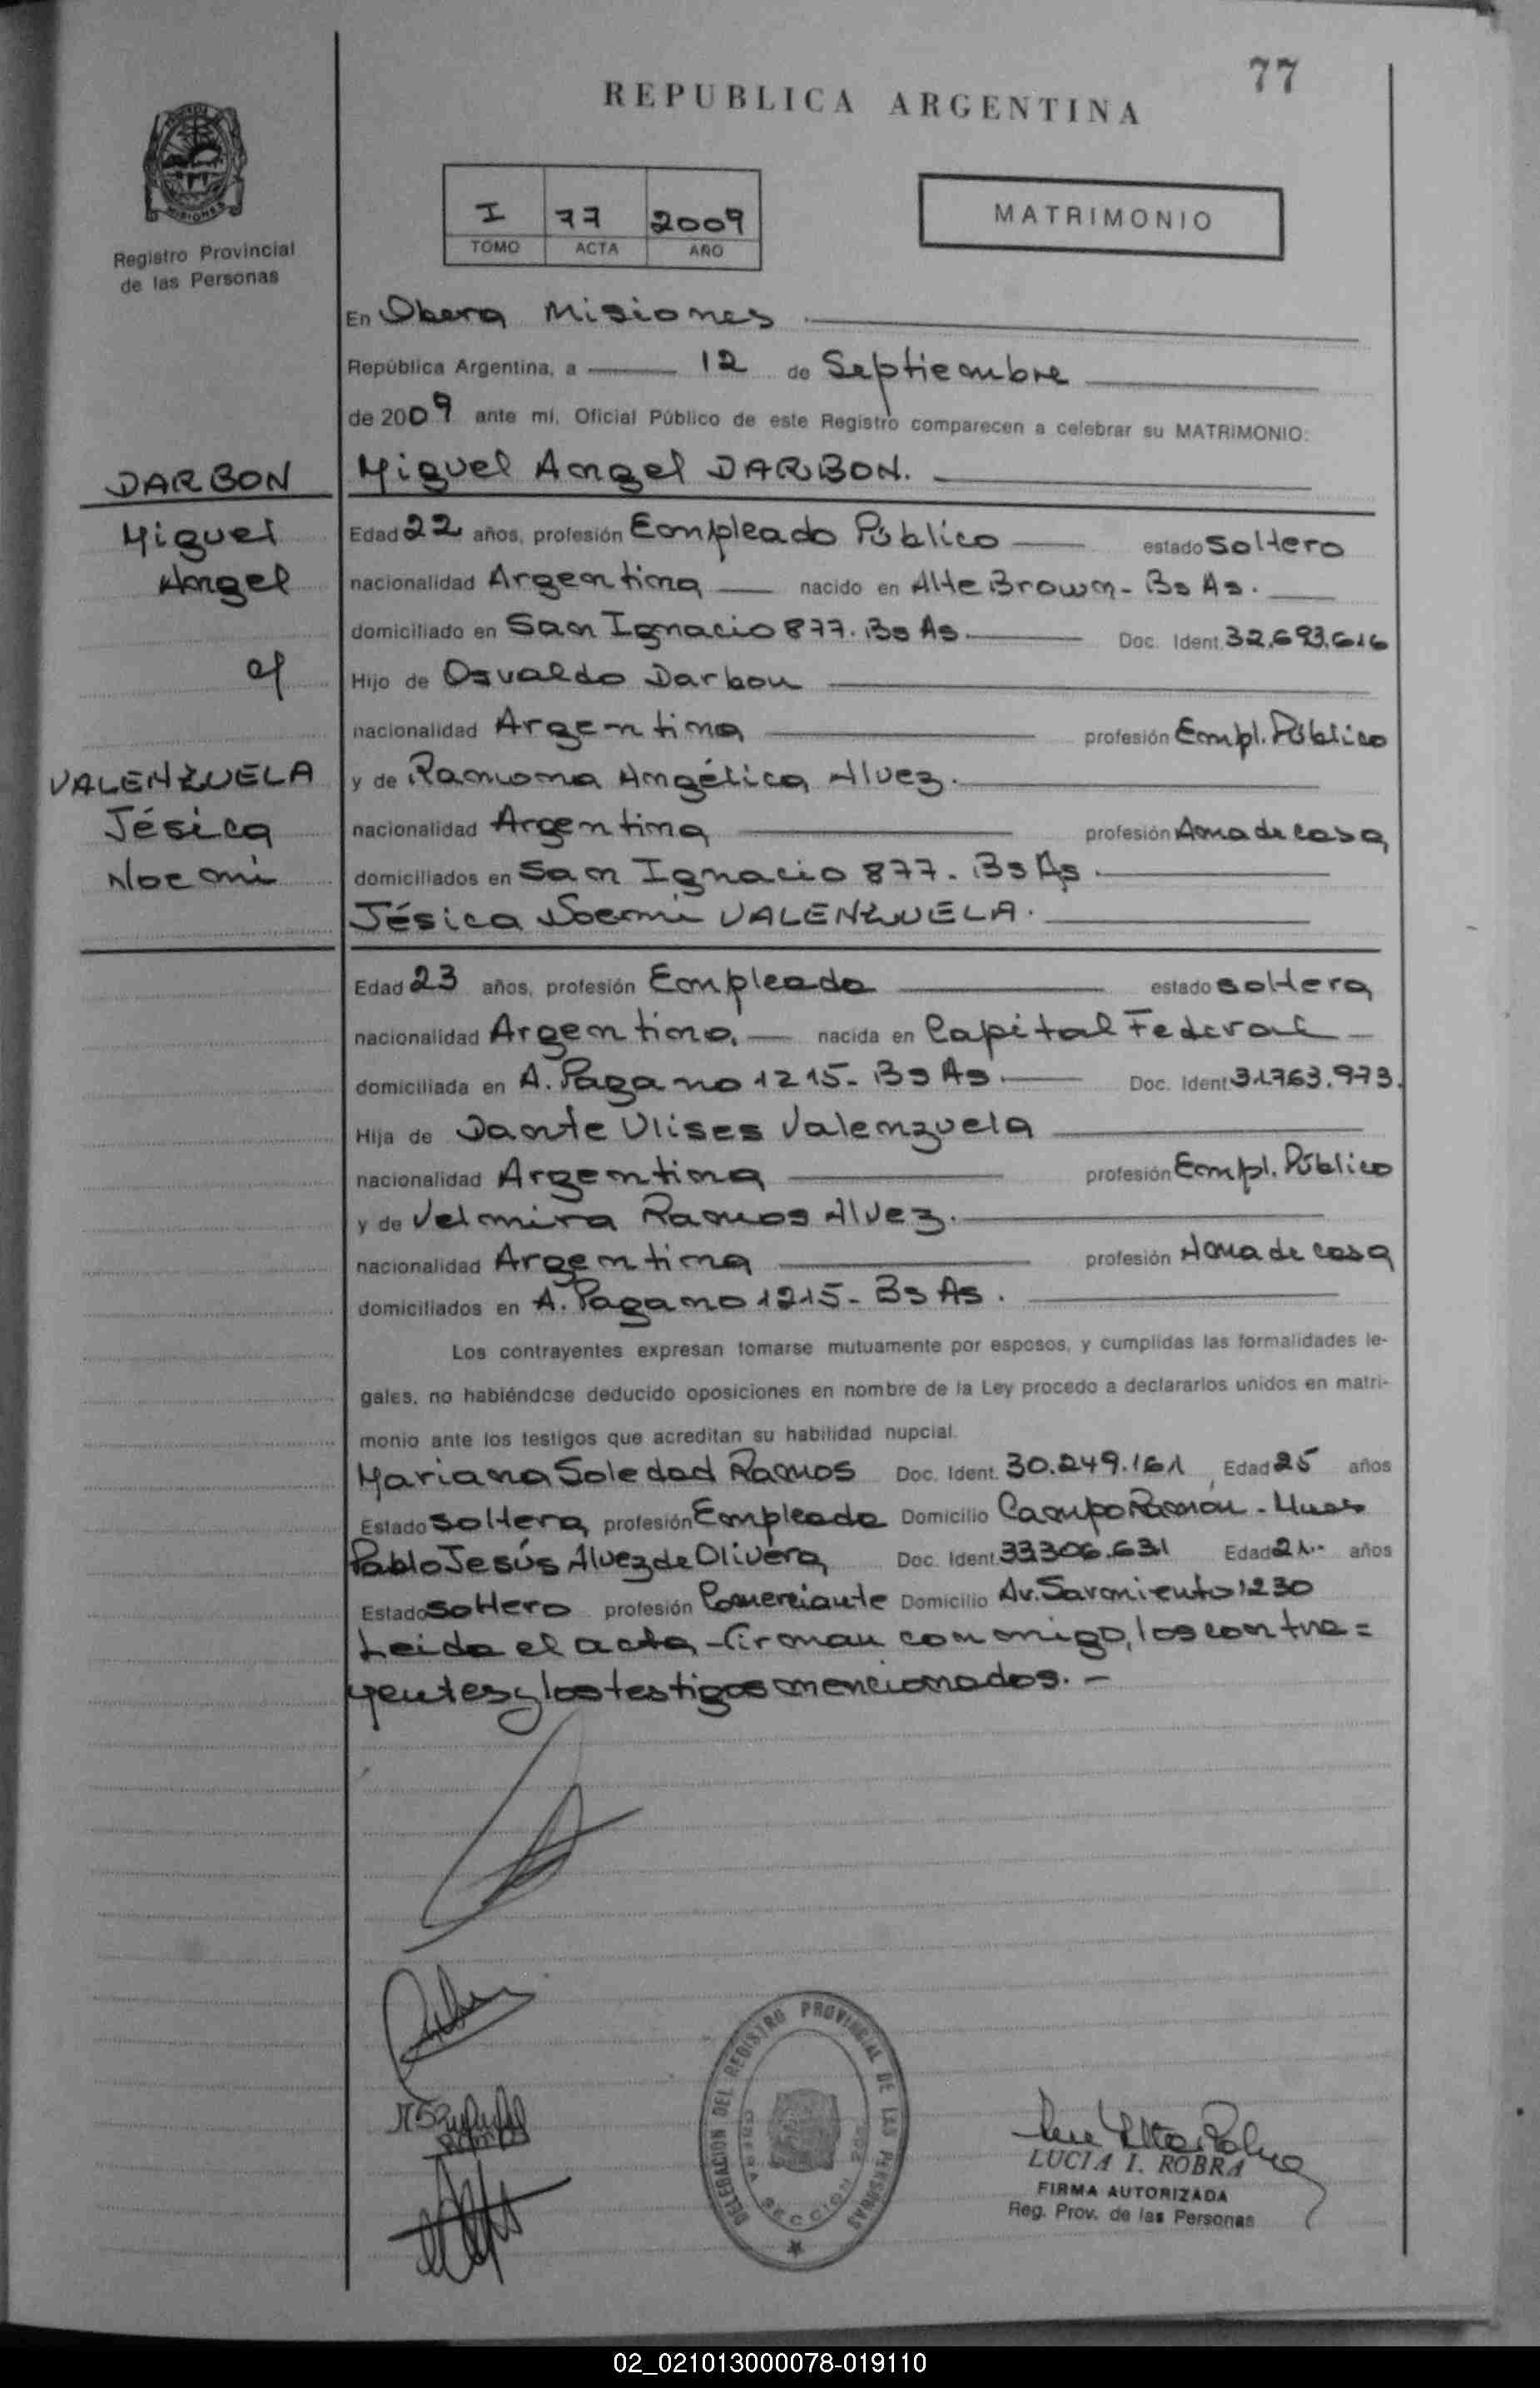 77
REPUBLICA ARGENTINA
MISIONES
Registro Provincial
de las Personas
I 77 2009
TOMO ACTA AÑO
MATRIMONIO
En Obera Misiones
República Argentina, a 12 de Septiembre
de 2009 ante mí, Oficial Público de este Registro comparecen a celebrar su MATRIMONIO:
DARBON
Miguel
Angel
VALENZUELA
Jésica
Noemi
Miguel Angel DARBON.
Edad 22 años, profesión Empleado Público estado soltero
nacionalidad Argentina nacido en Alte Brown - Bs As.
domiciliado en San Ignacio 877. Bs As. Doc. Ident. 32.693.616
Hijo de Osvaldo Darbon
nacionalidad Argentina profesión Empl. Público
y de Ramona Angélica Alvez.
nacionalidad Argentina profesión Ama de casa
domiciliados en San Ignacio 877. Bs As.
Jésica Noemi VALENZUELA.
Edad 23 años, profesión Empleada estado soltera
nacionalidad Argentina. nacida en Capital Federal
domiciliada en A. Pagano 1215 - Bs As. Doc. Ident 31.763.973.
Hija de Dante Ulises Valenzuela
nacionalidad Argentina profesión Empl. Público
y de Velmira Ramos Alvez.
nacionalidad Argentina profesión Ama de casa
domiciliados en A. Pagano 1215 - Bs As.
Los contrayentes expresan tomarse mutuamente por esposos, y cumplidas las formalidades le-
gales, no habiéndose deducido oposiciones en nombre de la Ley procedo a declararlos unidos en matri-
monio ante los testigos que acreditan su habilidad nupcial.
Mariana Soledad Ramos Doc. Ident. 30.249.161 Edad 25 años
Estado soltera profesión Empleada Domicilio Campo Ramón - Mnes
Pablo Jesús Alvez de Olivera Doc. Ident. 33.306.631 Edad 21.- años
Estado soltero profesión Comerciante Domicilio Av. Sarmiento 1230
Leida el acta firman conmigo, los contra=
yentes y los testigos mencionados. -
RAMOS
DELEGACION DEL REGISTRO PROVINCIAL DE LAS PERSONAS
OBERA SECCION
LUCIA I. ROBRA
FIRMA AUTORIZADA
Reg. Prov. de las Personas
02_021013000078-019110